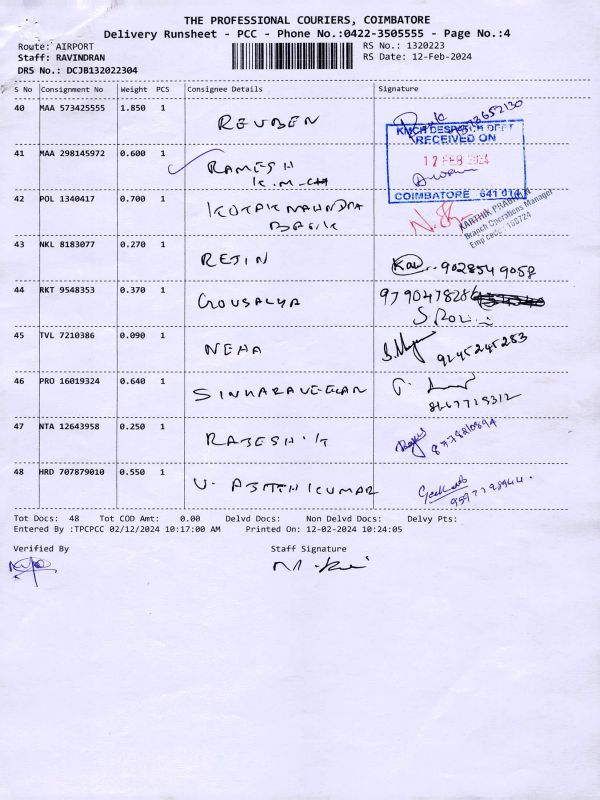 THE PROFESSIONAL COURIERS, COIMBATORE
Delivery Runsheet - PCC - Phone No.:0422-3505555 - Page No.:4
Route: AIRPORT RS No.: 1320223
Staff: RAVINDRAN RS Date: 12-Feb-2024
DRS No.: DCJB132022304
S No Consignment No Weight PCS Consignee Details Signature
40 MAA 573425555 1.850 1 REUBEN
KMCH DESPATCH DEPT
RECEIVED ON
12 FEB 2024
COIMBATORE 641 014
41 MAA 298145972 0.600 1 RAMESH
K.M-CH
42 POL 1340417 0.700 1 KOTAK MAHINDRA
BANK
KARTHIK PRABHU
Branch Operations Manager
43 NKL 8183077 0.270 1 REJIN 902854 9058
44 RKT 9548353 0.370 1 GOUSALYA 9790478286
45 TVL 7210386 0.090 1 NEHA 9245245283
46 PRO 16019324 0.640 1 SINHARAVEELAN
47 NTA 12643958 0.250 1 RAJESH.K
48 HRD 707879010 0.550 1 V. AJITH KUMAR
Tot Docs: 48 Tot COD Amt: 0.00 Delvd Docs: Non Delvd Docs: Delvy Pts:
Entered By :TPCPCC 02/12/2024 10:17:00 AM Printed On: 12-02-2024 10:24:05
Verified By Staff Signature